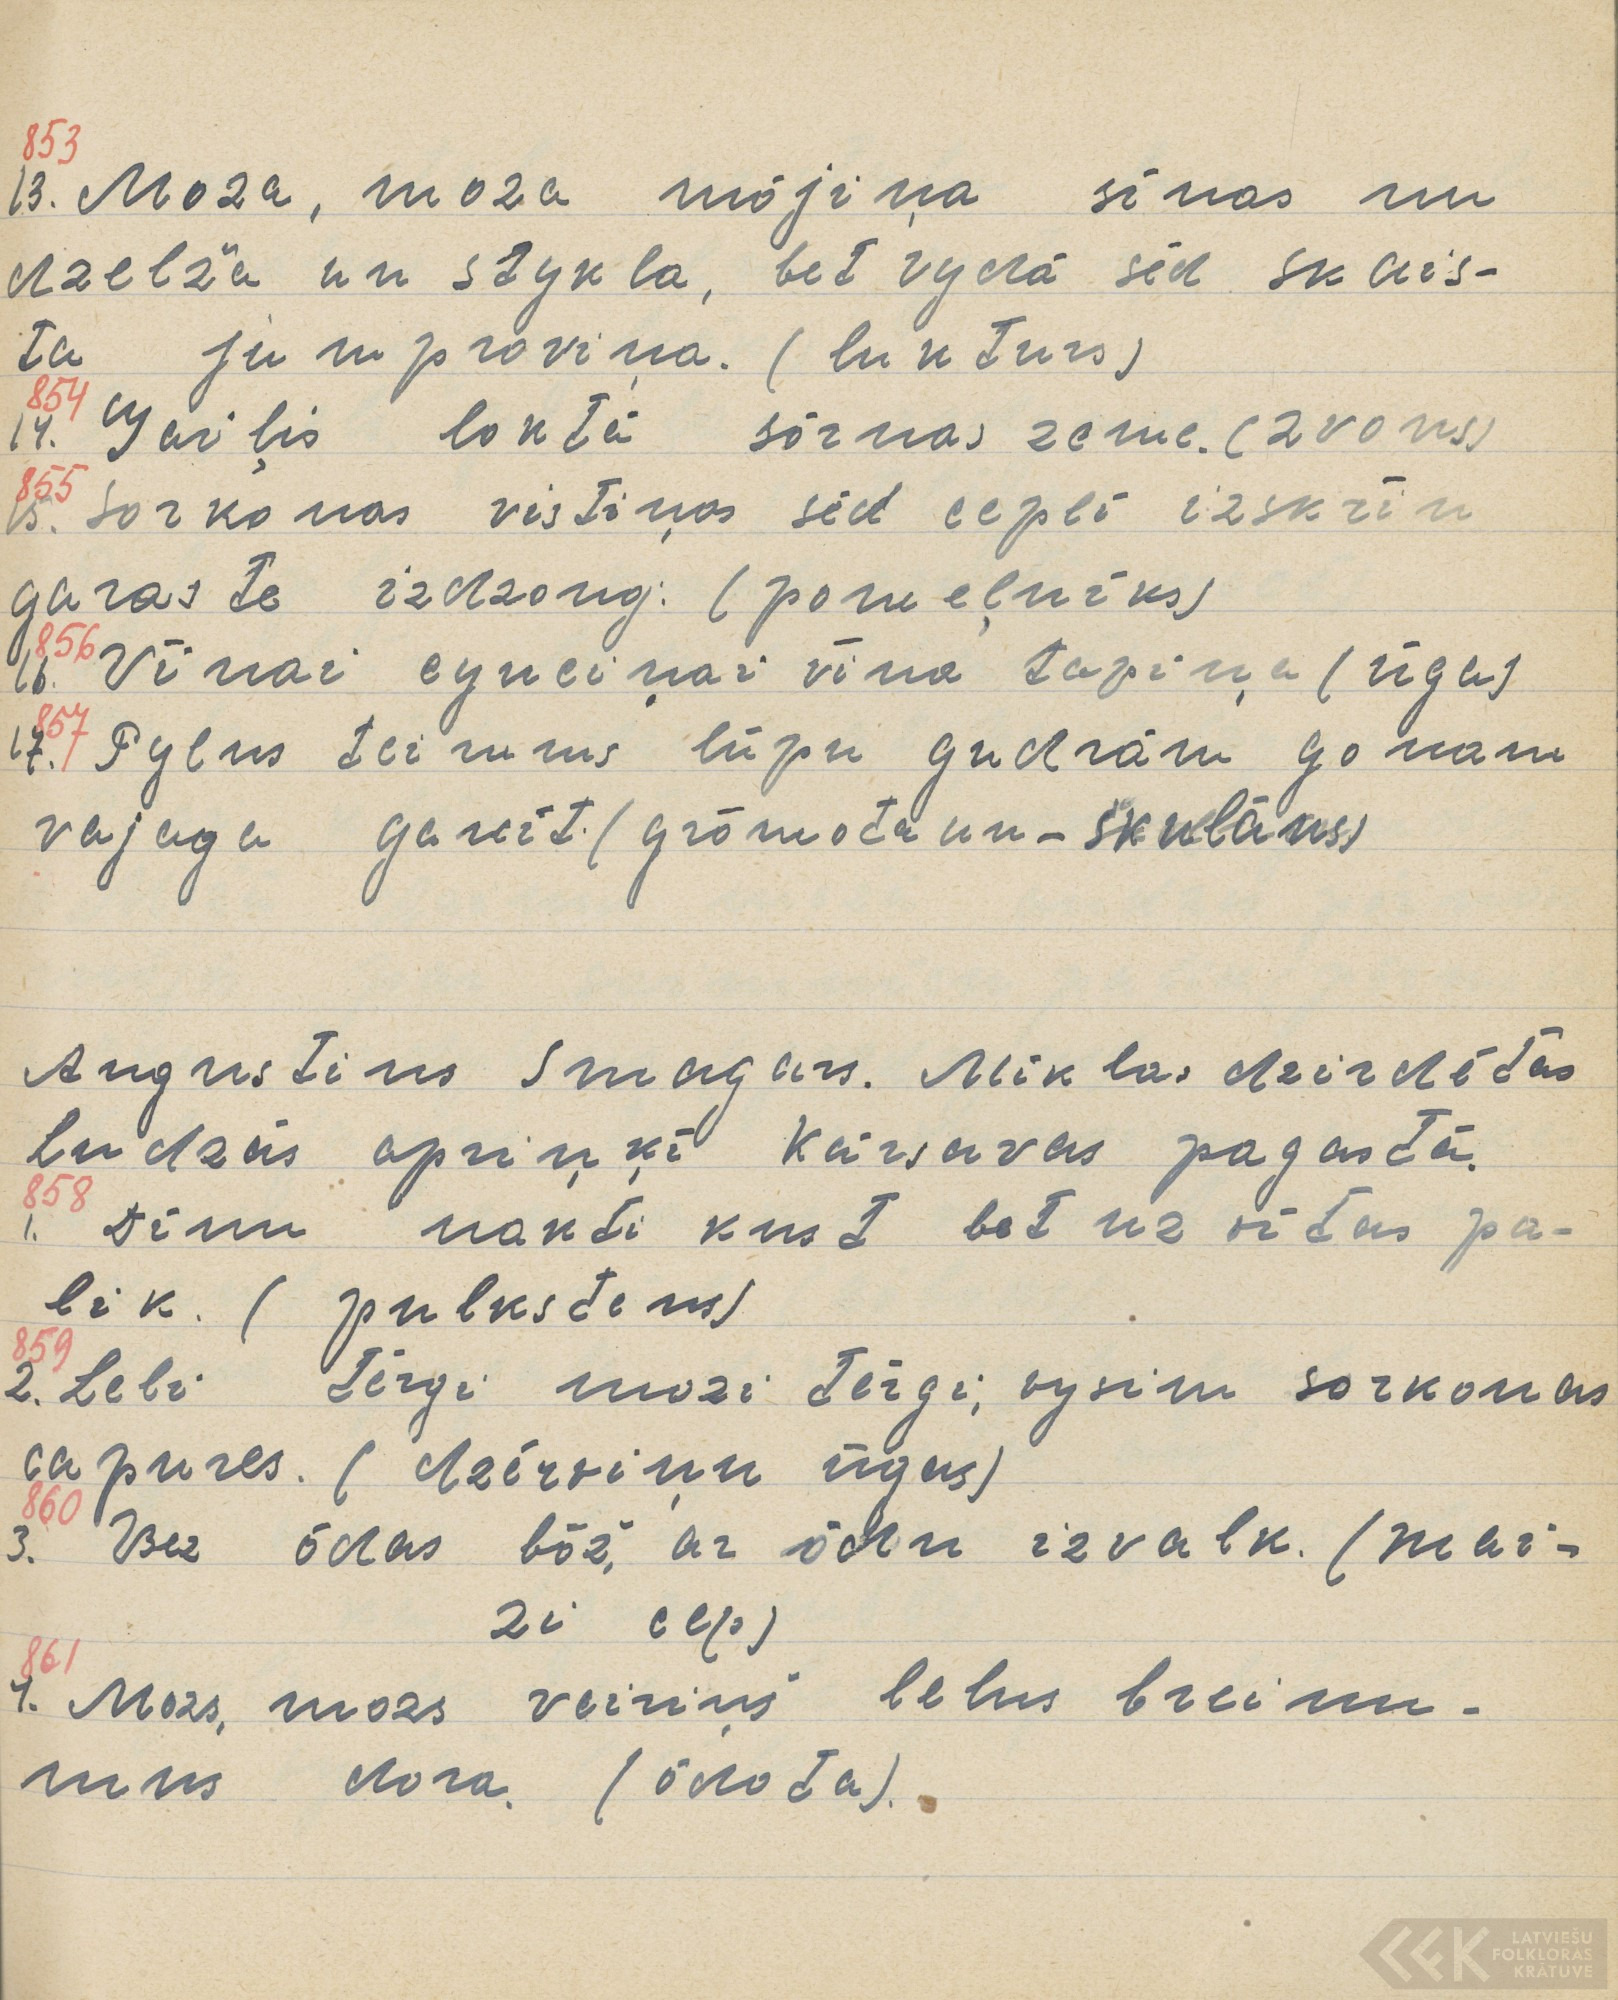 853
13. Moza, moza mōjiņa sīnas nu
dzelža un stykla, bet vydā sēd skais-
ta jumproviņa. (lukturs)
854
14. Gaiļis loktā sōrnas zeme. (zvons)
855
15. Sorkonas vistiņas sēd ceplī izskrīn
garaste izdzong. (pomeļnīks)
856
16. Vīnai cyuciņai vīna tapiņa (ūga)
857
17. Pylns teirums lūpu gudrām gonam
vajaga ganīt. (grōmota un - škulāns)
Augustins Smagars. Mīklas dzirdētas
Ludzas apriņķī Kārsavas pagastā.
858
1. Dīnu nakti kust bet uz vītas pa-
lik. (pulkstens)
859
2. Leli tērgi mozi tērgi, vysim sorkonas
capures. (dzērviņu ūgas)
860
3. Bez ōdas bōž, ar ōdu izvalk. (mai-
zi cep)
861
4. Mozs, mozs veiriņš lelus breinu-
mus dora. (ōdota).
LATVIEŠU
FOLKLORAS
KRĀTUVE